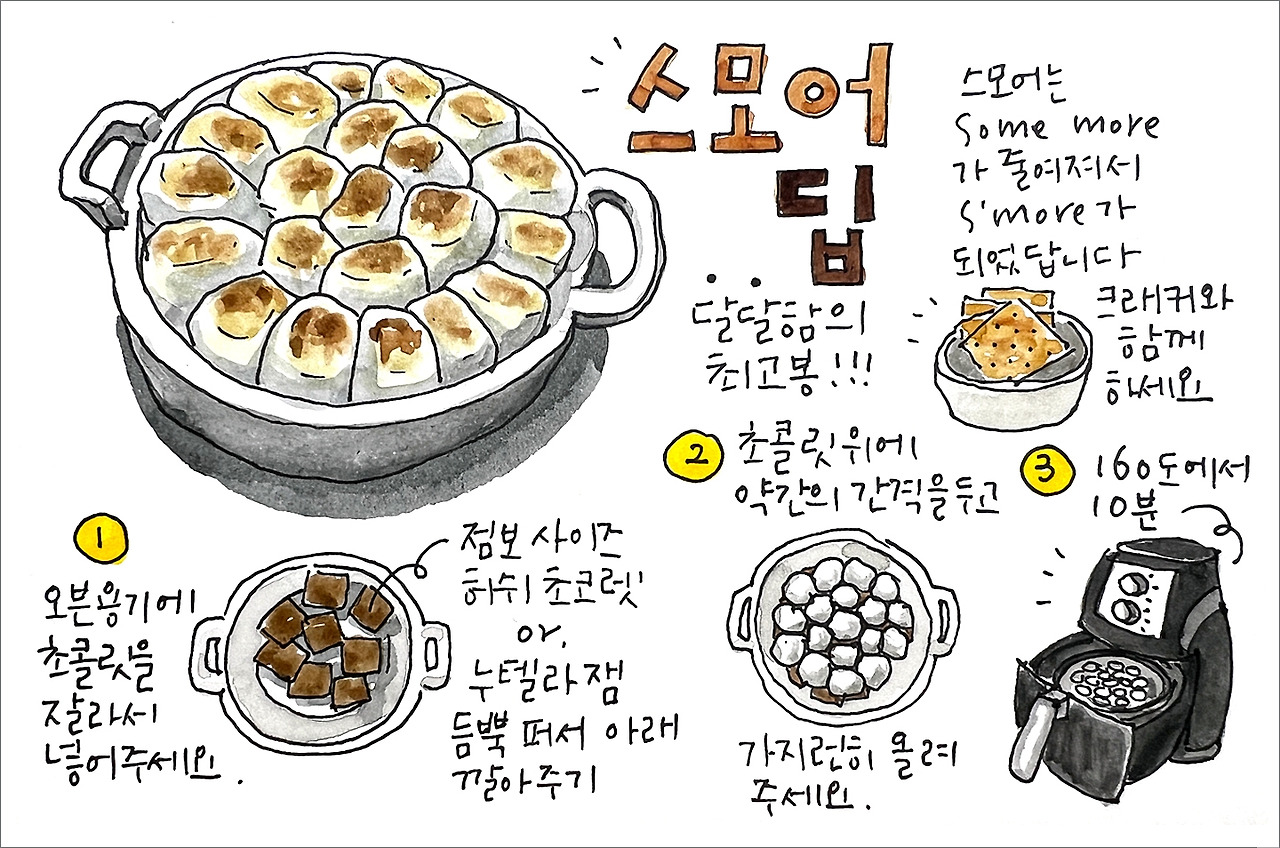 스모어
딥
달달함의
최고봉!!!
스모어는
Some more
가 줄여져서
S'more가
되었답니다
크래커와
함께
하세요
1
오븐용기에
초콜릿을
잘라서
넣어주세요.
점보 사이즈
허쉬 초코렛
or.
누텔라 잼
듬뿍 퍼서 아래
깔아주기
2
초콜릿 위에
약간의 간격을 두고
가지런히 올려
주세요.
3
160도에서
10분